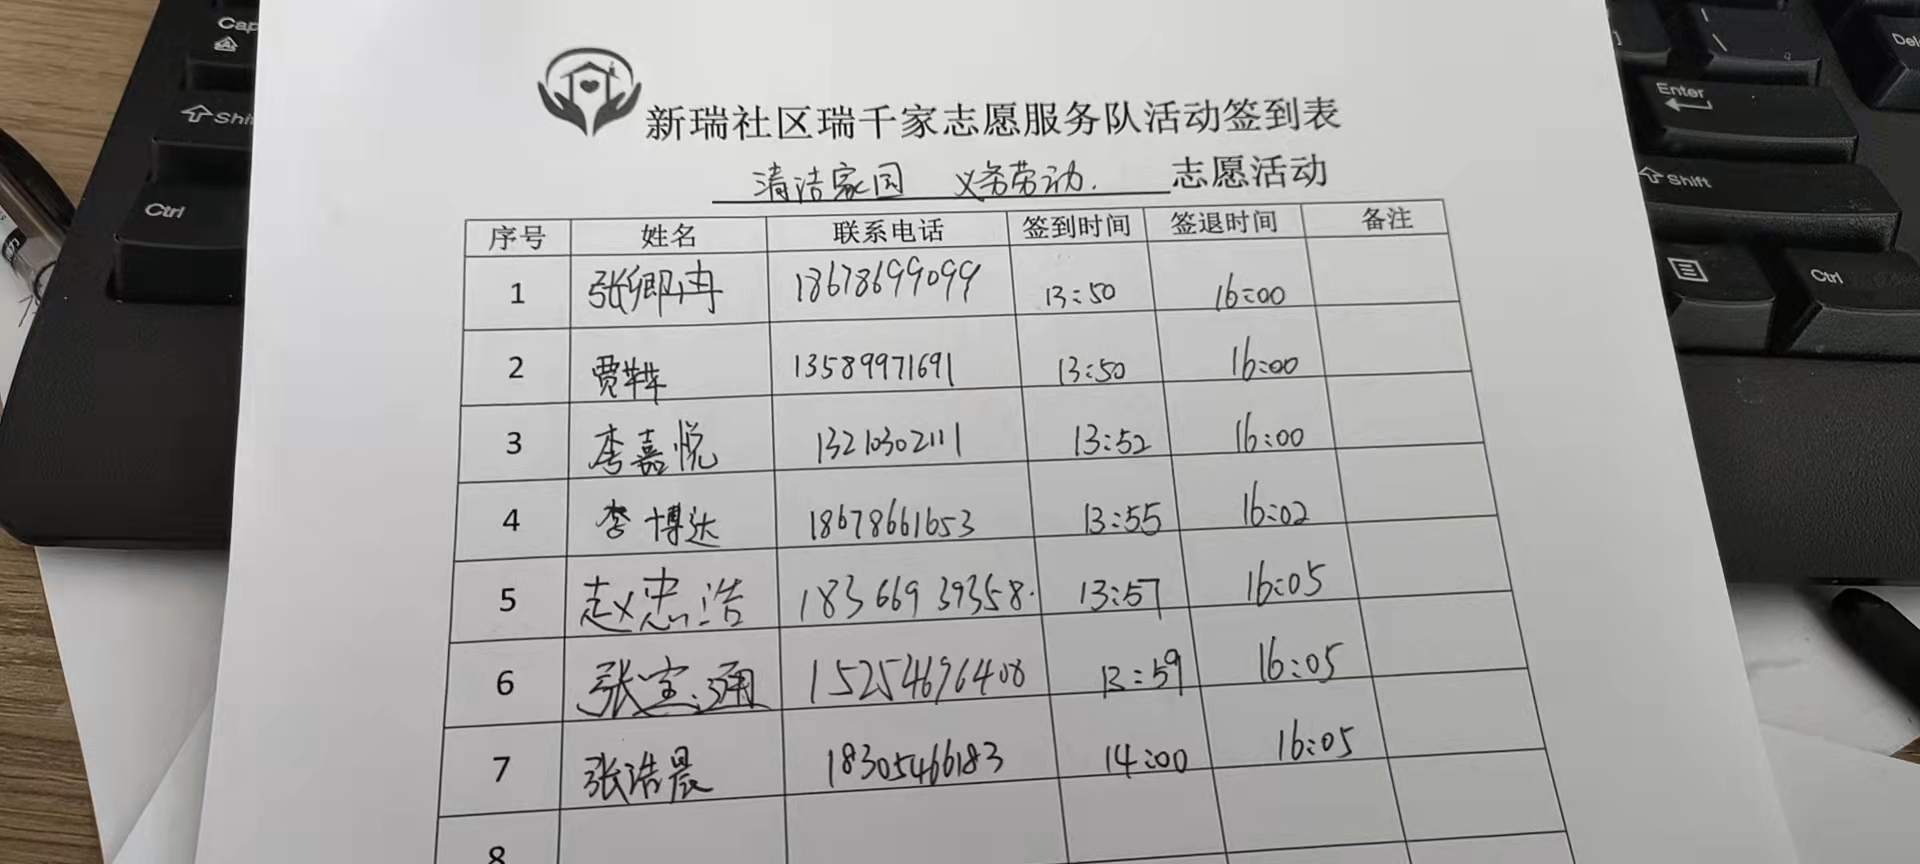 新瑞社区瑞千家志愿服务队活动签到表
清洁家园 义务劳动. 志愿活动
序号 姓名 联系电话 签到时间 签退时间 备注
1 张卿冉 18678699099 13:50 16:00
2 贾 13589971691 13:50 16:00
3 李嘉悦 13210302111 13:52 16:00
4 李博达 18678661653 13:55 16:02
5 赵忠浩 18366939358. 13:57 16:05
6 张宝通 15254696408 13:59 16:05
7 张浩晨 18305466183 14:00 16:05
8
Cap
Shi
Ctrl
Del
Enter
Shift
Ctrl